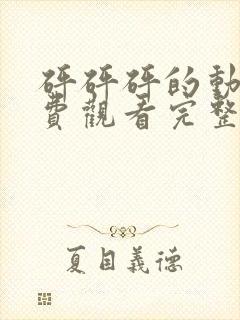 砰砰砰的動
費觀看完整
夏目義德